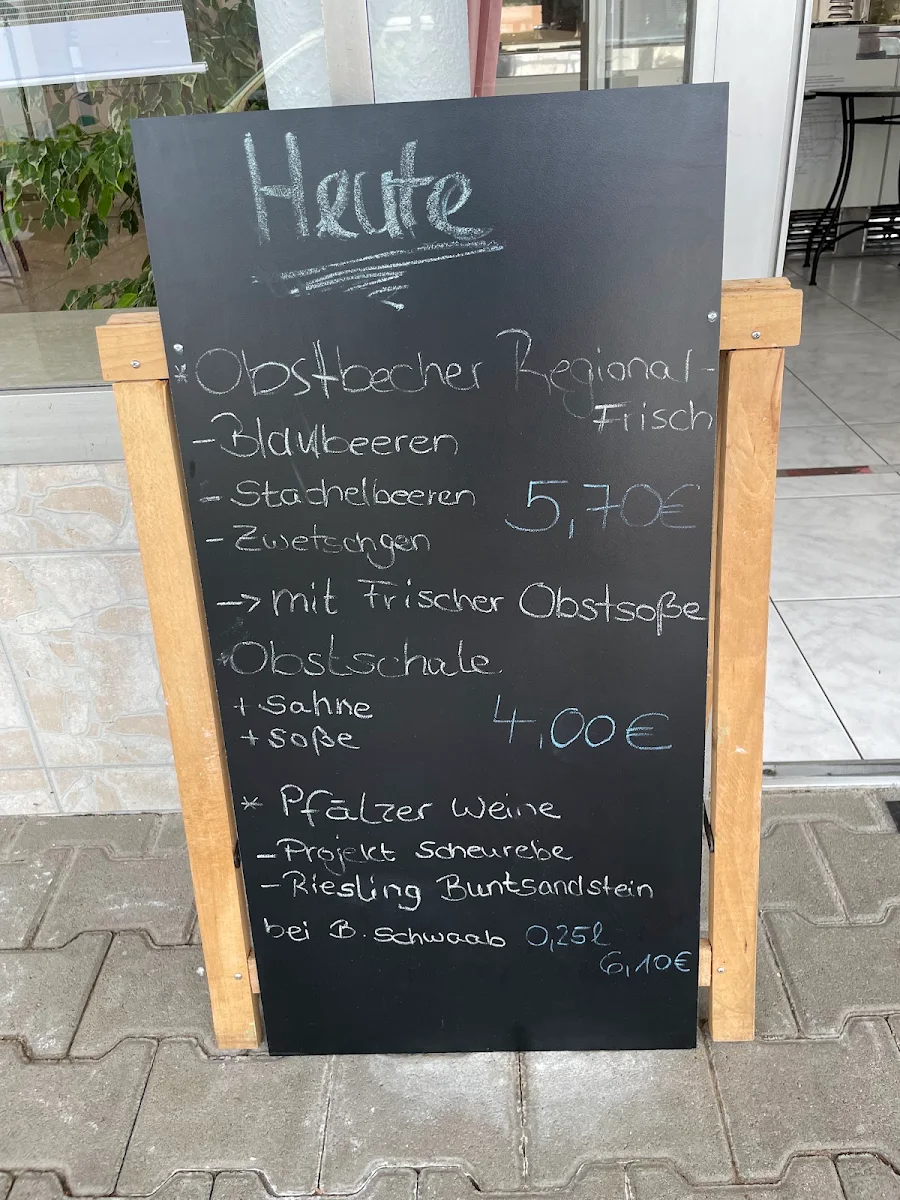 Heute
* Obstbecher Regional-
Frisch
- Blaubeeren
- Stachelbeeren 5,70€
- Zwetschgen
→ mit Frischer Obstsoße
* Obstschale
+ Sahne
+ Soße 4,00€
* Pfälzer Weine
- Projekt Scheurebe
- Riesling Buntsandstein
bei B. Schwaab 0,25l
6,10€